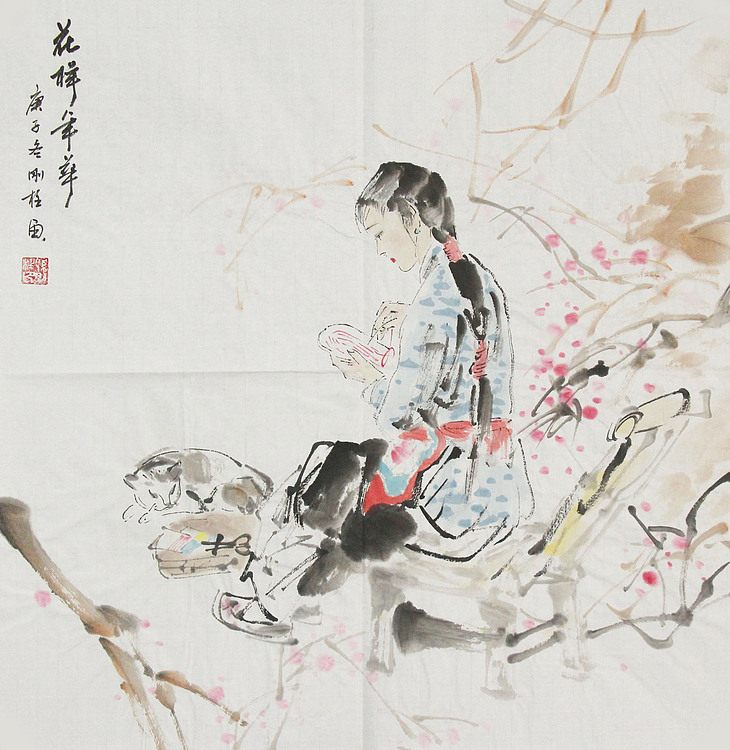 花样年华
庚子冬刚柱画